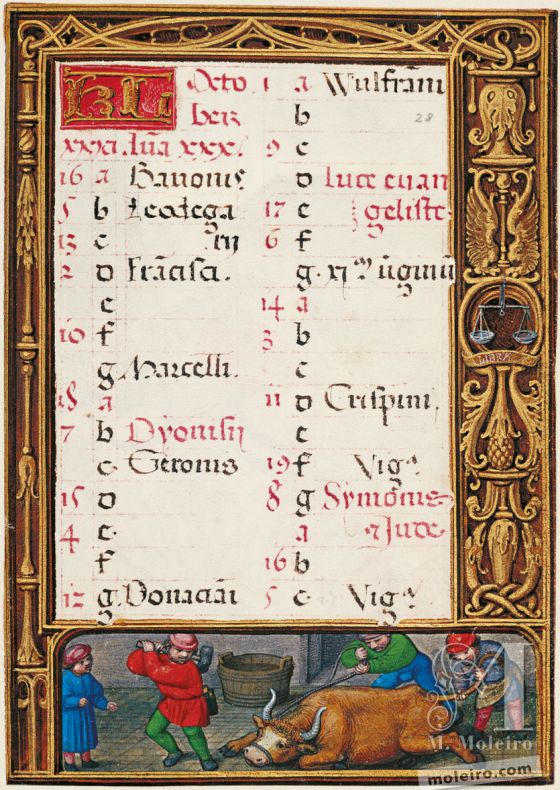 KL Octo
ber
xxxi. lūa xxx.
16 a Bauonis
5 b Leodega
13 c rij
2 d Frācisci.
e
10 f
g. Marcelli.
18 a
7 b Dyonisii
c. Gereonis
15 d
4 e.
f
12 g. Donaciani
1 a Wulfrāni
28
b
9 c
d Luce euan
17 e geliste
6 f
g. xi.
14 a
3 b
c
11 d Crispini,
e
19 f Vigᵃ
8 g Symonis
a ⁊ Jude
16 b
5 c. Vigᵃ
LIBRA
M. Moleiro
moleiro.com